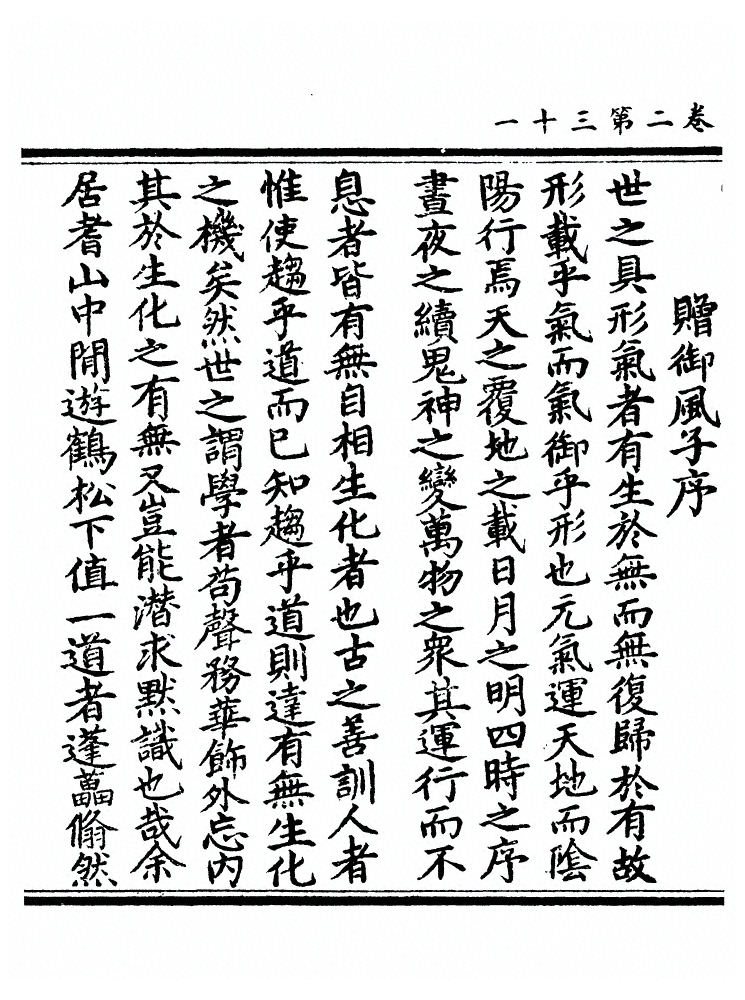 卷二第三十一
贈御風子序
世之具形氣者有生於無而無復歸於有故
形載乎氣而氣御乎形也元氣運天地而陰
陽行焉天之覆地之載日月之明四時之序
晝夜之續鬼神之變萬物之衆其運行而不
息者皆有無自相生化者也古之善訓人者
惟使趨乎道而已知趨乎道則達有無生化
之機矣然世之謂學者苟聲務華飾外忘內
其於生化之有無又豈能潛求默識也哉余
居耆山中閒遊鶴松下值一道者蓬藟翛然